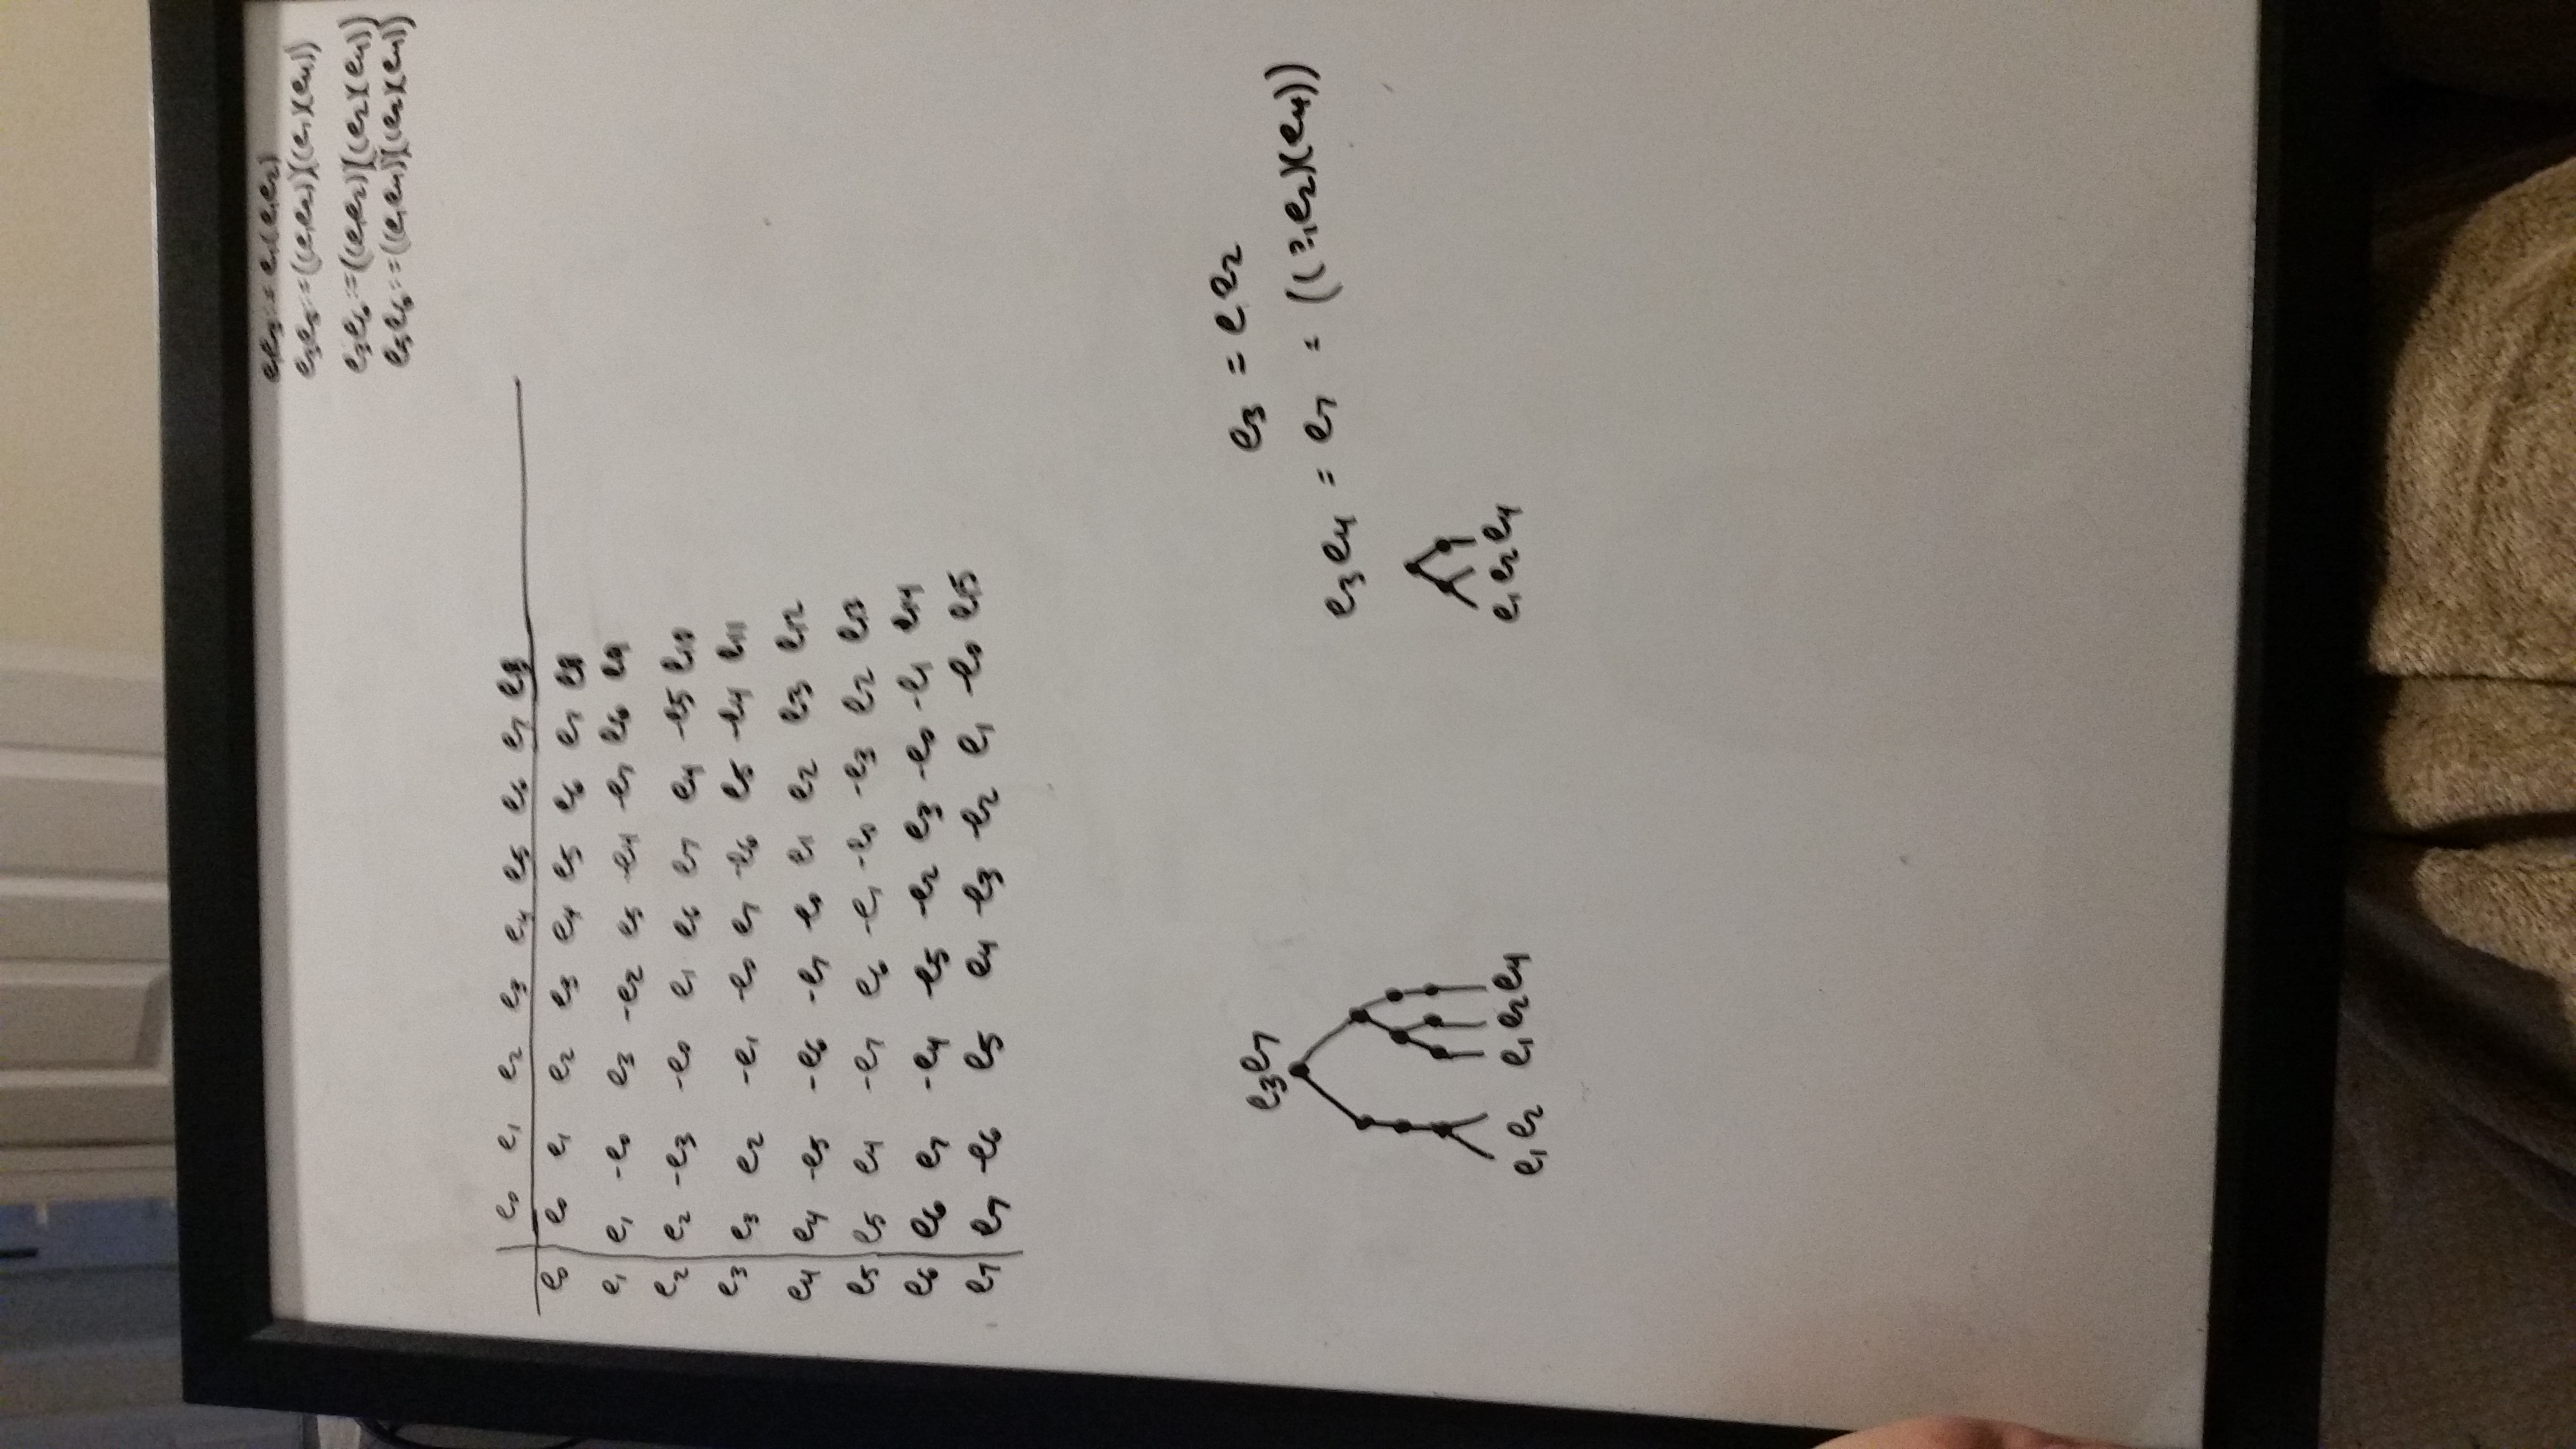 e₁e₃ := e₁(e₁e₂)
e₃e₅ := ((e₁e₂)(e₁)(e₄))
e₃e₆ := ((e₁e₂)(e₂)(e₄))
e₅e₆ := ((e₁e₄)(e₂)(e₄))
e₀ e₁ e₂ e₃ e₄ e₅ e₆ e₇ e₈
e₀ e₀ e₁ e₂ e₃ e₄ e₅ e₆ e₇ e₈
e₁ e₁ -e₀ e₃ -e₂ e₅ -e₄ -e₇ e₆ e₉
e₂ e₂ -e₃ -e₀ e₁ e₆ e₇ e₄ -e₅ e₁₀
e₃ e₃ e₂ -e₁ -e₀ e₇ -e₆ e₅ -e₄ e₁₁
e₄ e₄ -e₅ -e₆ -e₇ -e₀ e₁ e₂ e₃ e₁₂
e₅ e₅ e₄ -e₇ e₆ -e₁ -e₀ -e₃ e₂ e₁₃
e₆ e₆ e₇ -e₄ -e₅ -e₂ e₃ -e₀ -e₁ e₁₄
e₇ e₇ -e₆ e₅ e₄ -e₃ -e₂ e₁ -e₀ e₁₅
e₃e₇
e₁ e₂ e₁ e₂ e₄
e₃ = e e₂
e₃e₄ = e₇ = ((e₁e₂)(e₄))
e₁ e₂ e₄